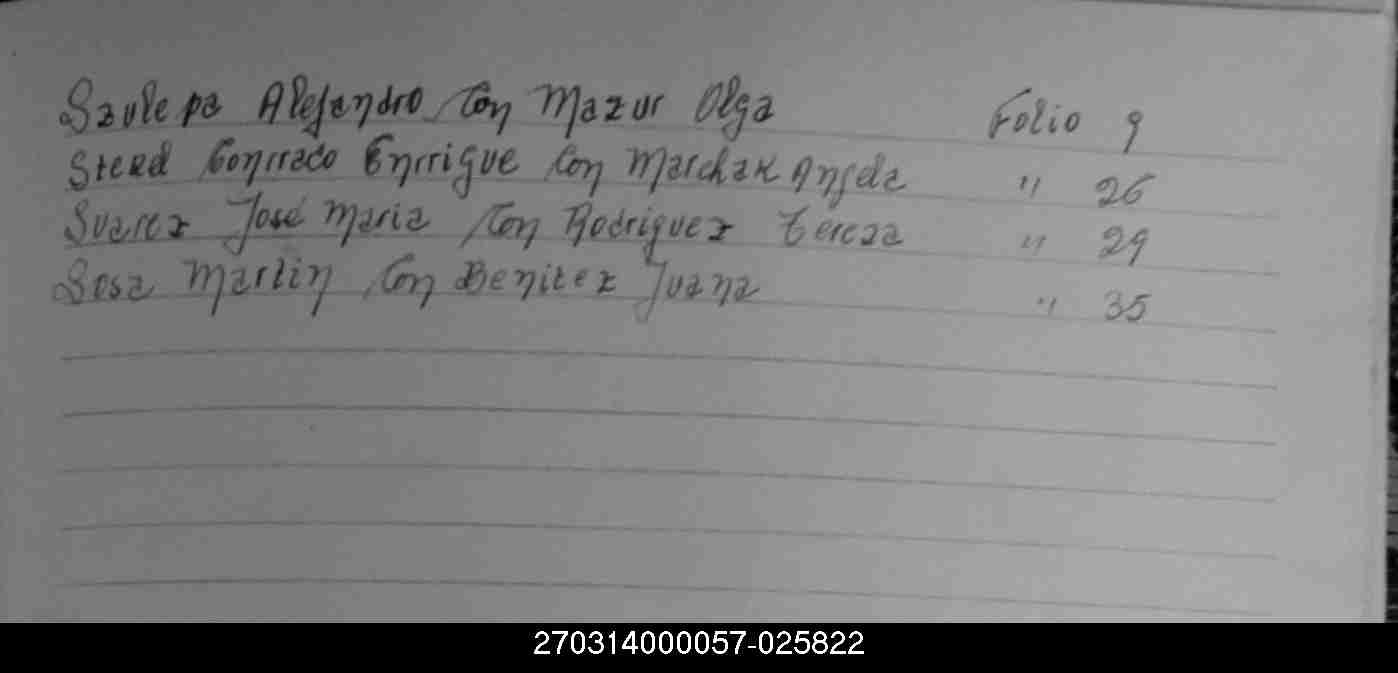 Saulepa Alejandro Con Mazur Olga Folio 9
Stead Conrrado Enrrique Con Marchak Angela " 26
Suarez José Maria Con Rodriguez Tereza " 29
Sosa Martin Con Benitez Juana " 35
270314000057-025822